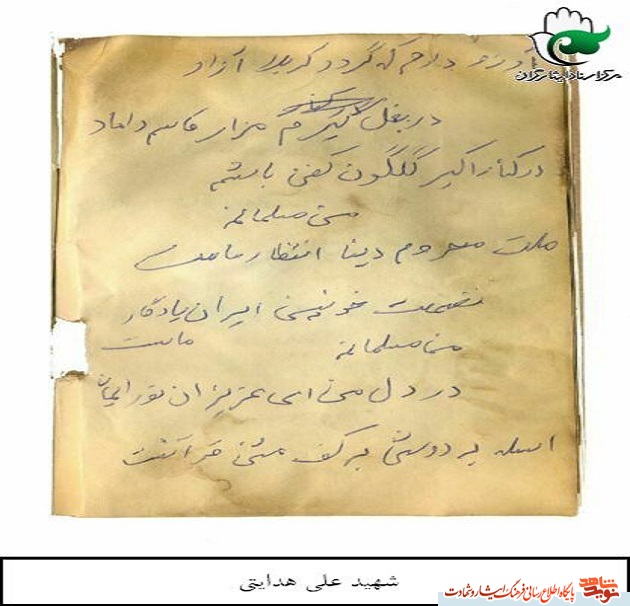 آرزو دارم که گردد کربلا آزاد
مرکز اسناد ایثارگران
در بغل گیرم مزار قاسم داماد
در کنار اکبر گلگون کفن باشم
من مسلمانم
ملت محروم دنیا انتظار ماست
نهضت خونین ایران یادگار
ماست
من مسلمانم
در دل من ای عزیزان نور ایمان
اسلحه بر دوش بر کف متن قرآنست
شهید علی هدایتی
نوید شاهد
پایگاه اطلاع رسانی فرهنگ ایثار و شهادت